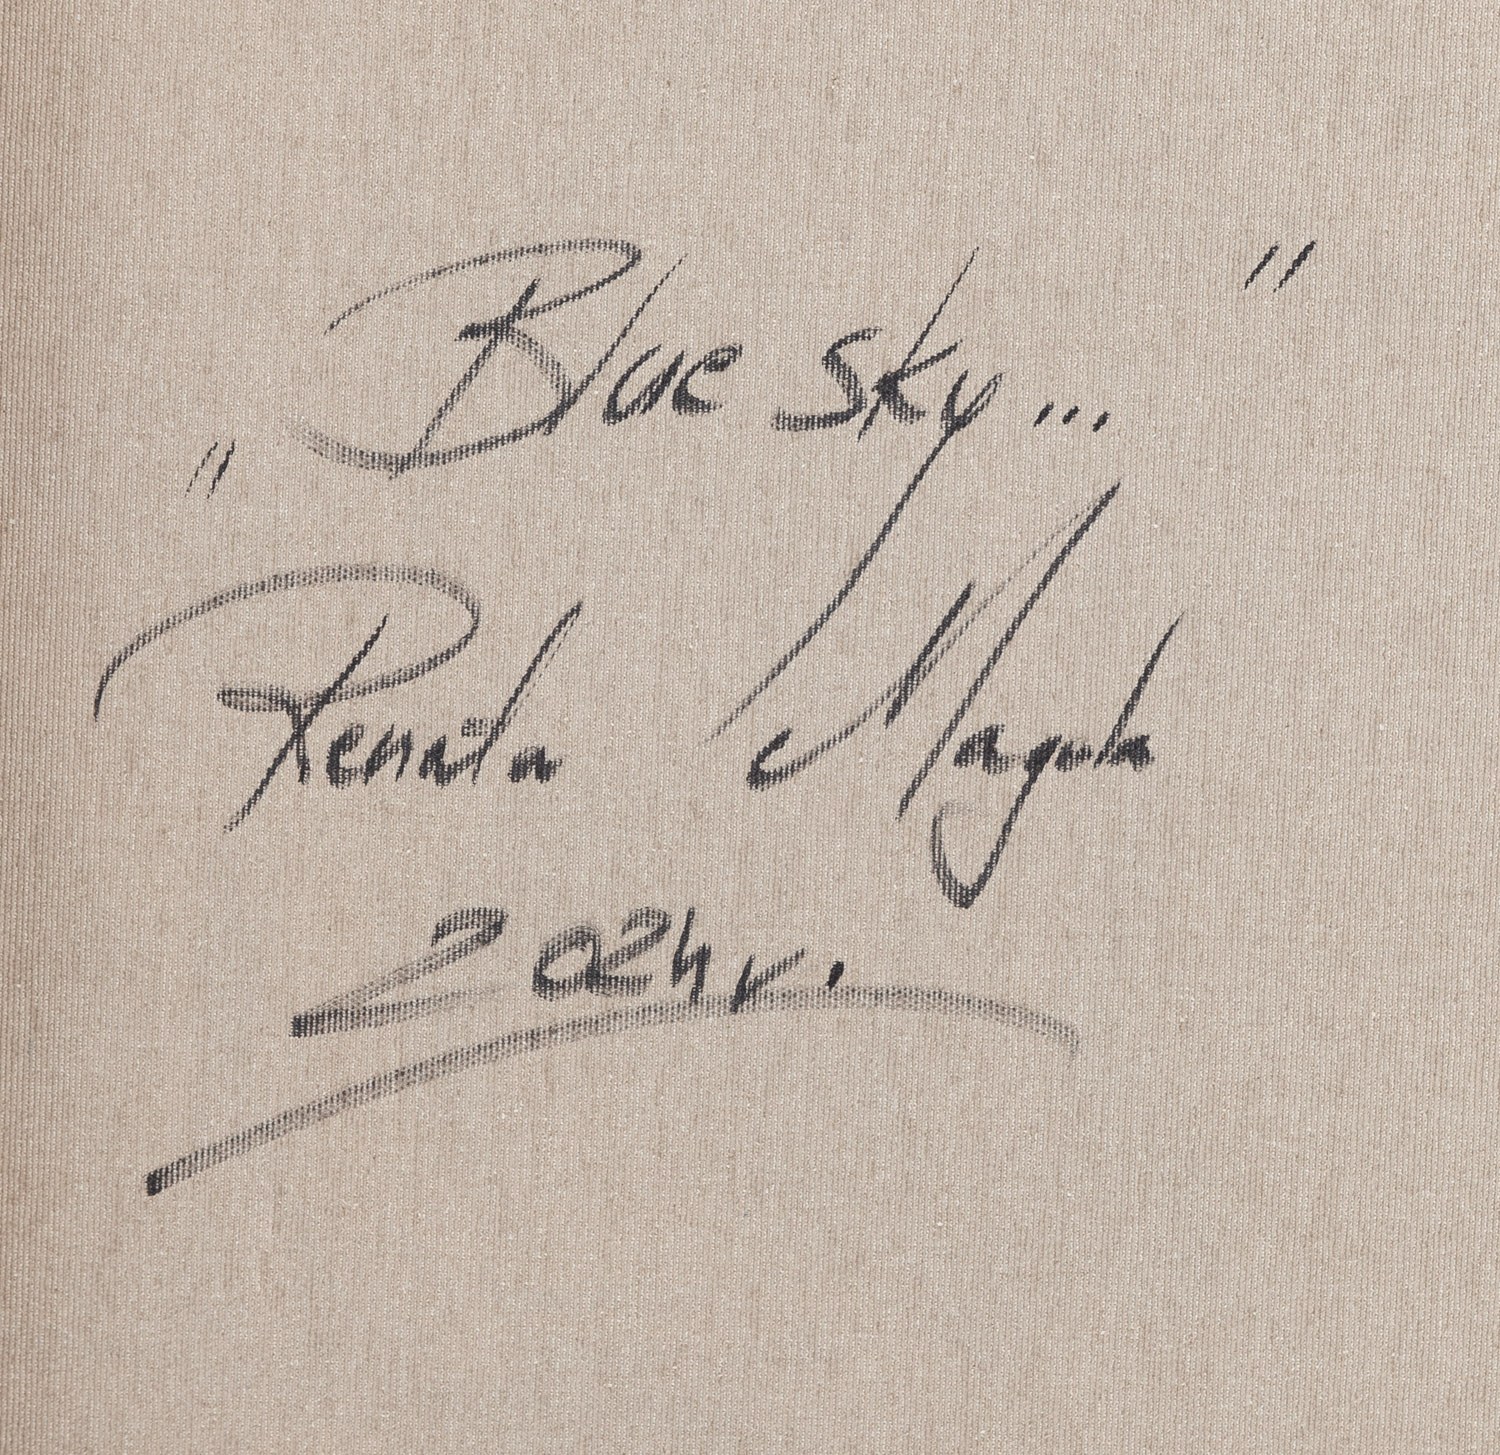 „Blue sky..."
Renata Magda
2024r.